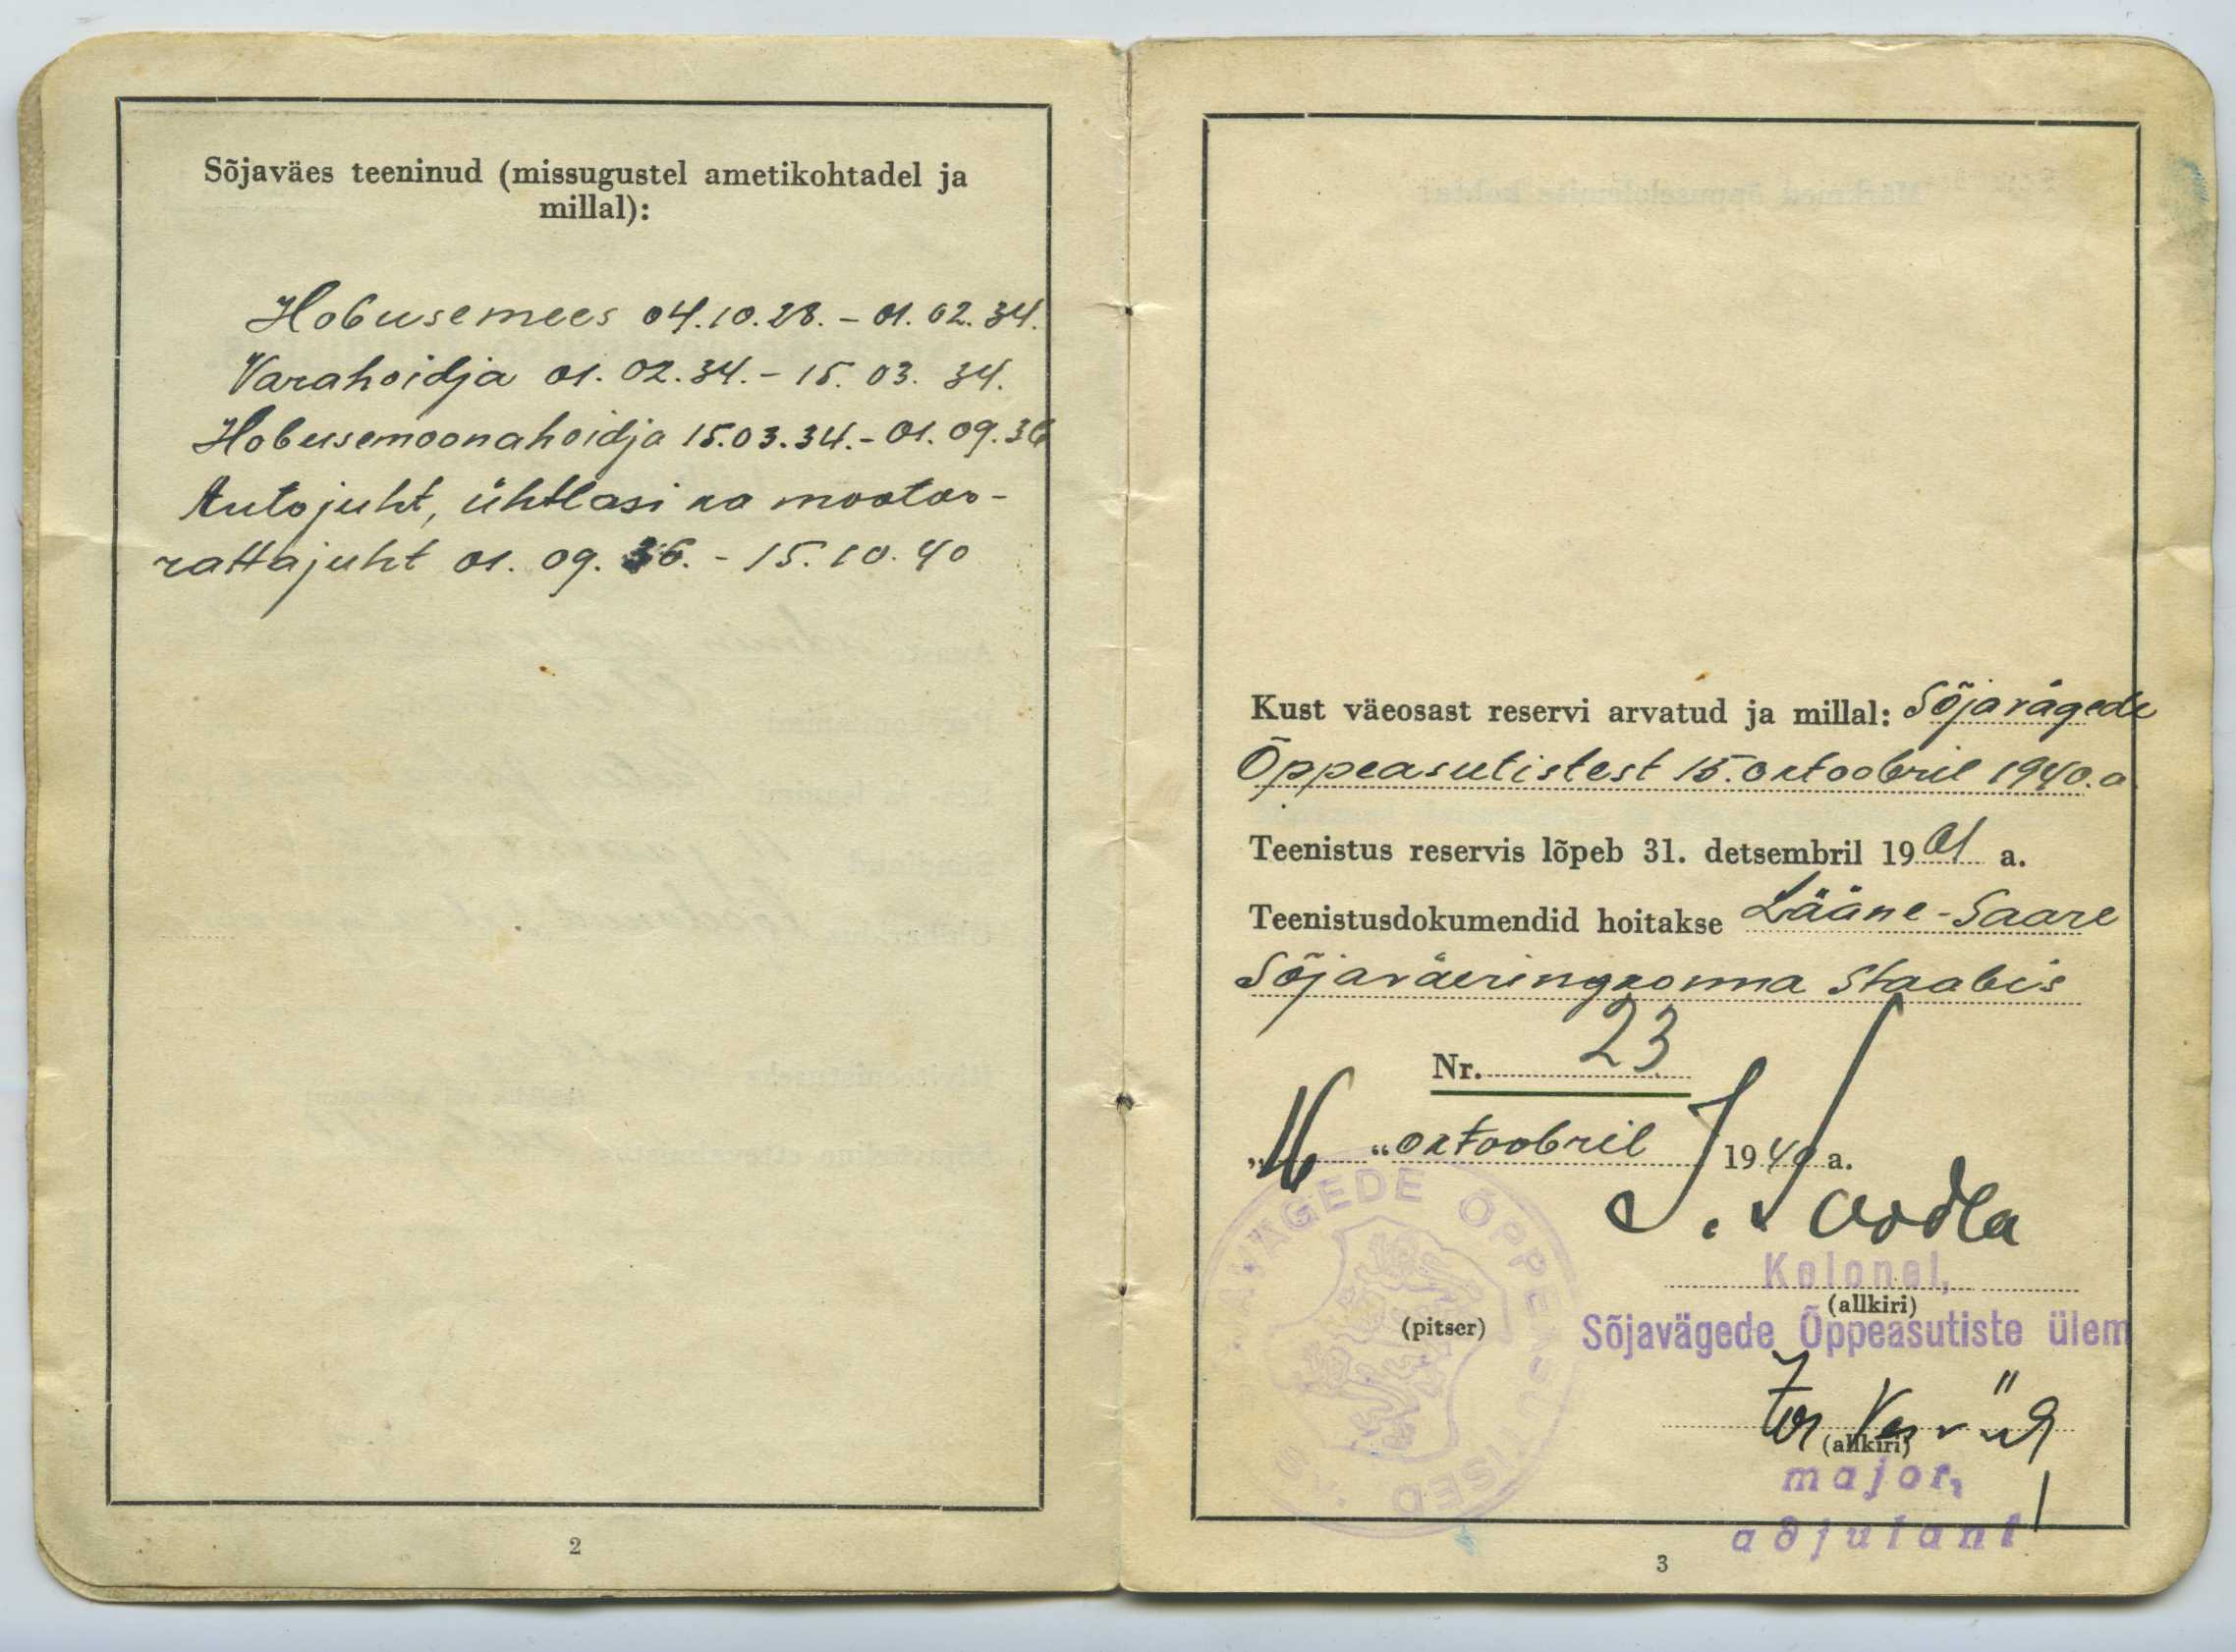 Sõjaväes teeninud (missugustel ametikohtadel ja
millal):
Hobusemees 04.10.28. - 01.02.34.
Varahoidja 01.02.34. - 15.03.34.
Hobusemoonahoidja 15.03.34. - 01.09.36
Autojuht, ühtlasi ka mootor-
rattajuht 01.09.36. - 15.10.40
2
Kust väeosast reservi arvatud ja millal: Sõjavägede
Õppeasutistest 15. oktoobril 1940.a
Teenistus reservis lõpeb 31. detsembril 1961 a.
Teenistusdokumendid hoitakse Lääne-Saare
Sõjaväeringkonna Staabis
Nr. 23
„16 “ oktoobril 1940 a.
J. Soodla
Kolonel,
(allkiri)
(pitser)
Sõjavägede Õppeasutiste ülem
(allkiri)
major,
adjutant
SÕJAVÄGEDE ÕPPEASUTISED
3